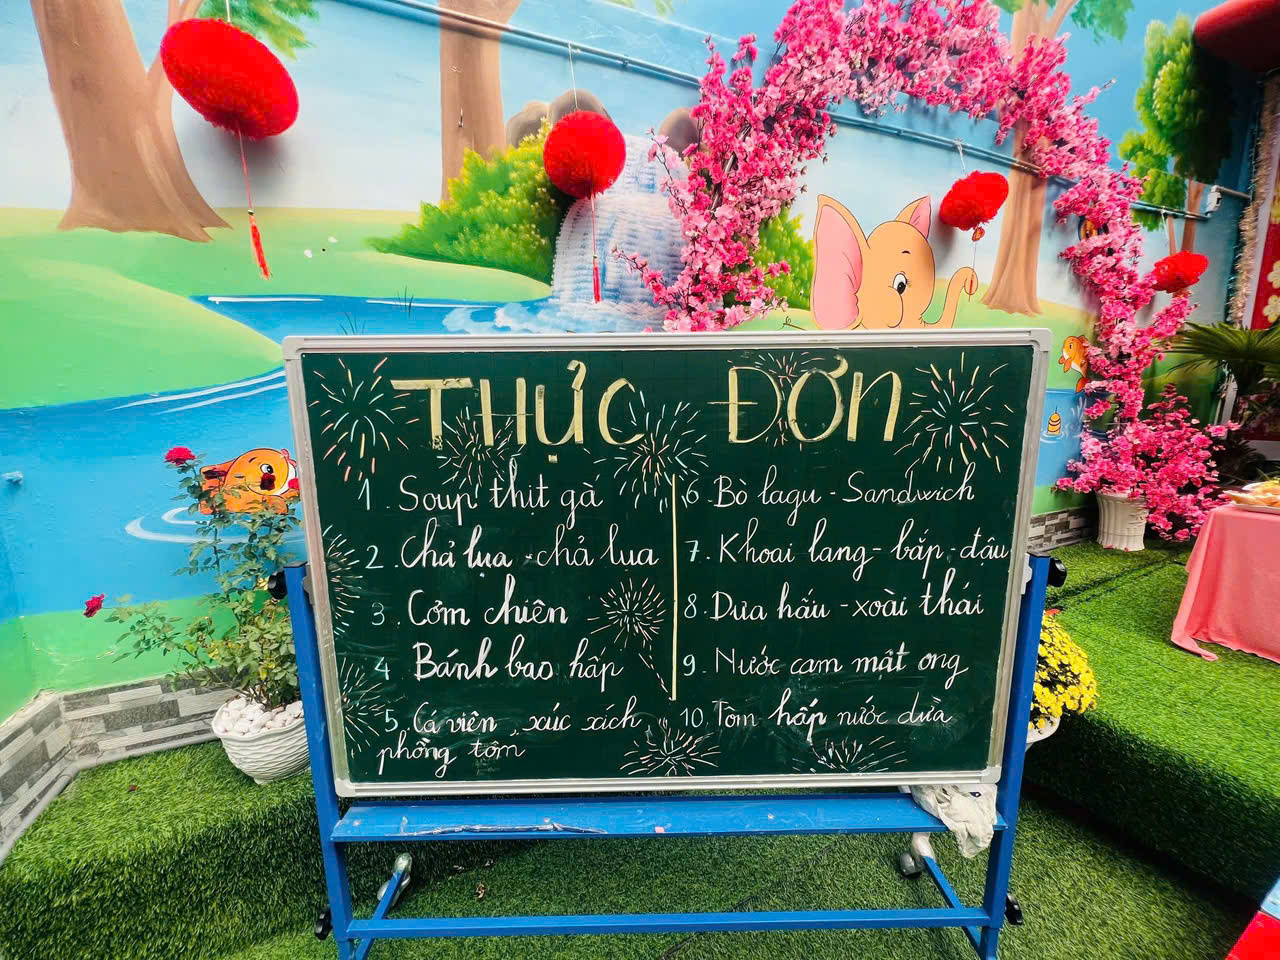 THỰC ĐƠN
1. Soup thịt gà
2. Chả lụa - chả lụa
3. Cơm chiên
4 Bánh bao hấp
5. Cá viên, xúc xích
phồng tôm
6. Bò lagu - Sandwich
7. Khoai lang - bắp - đậu
8. Dưa hấu - xoài thái
9. Nước cam mật ong
10. Tôm hấp nước dừa